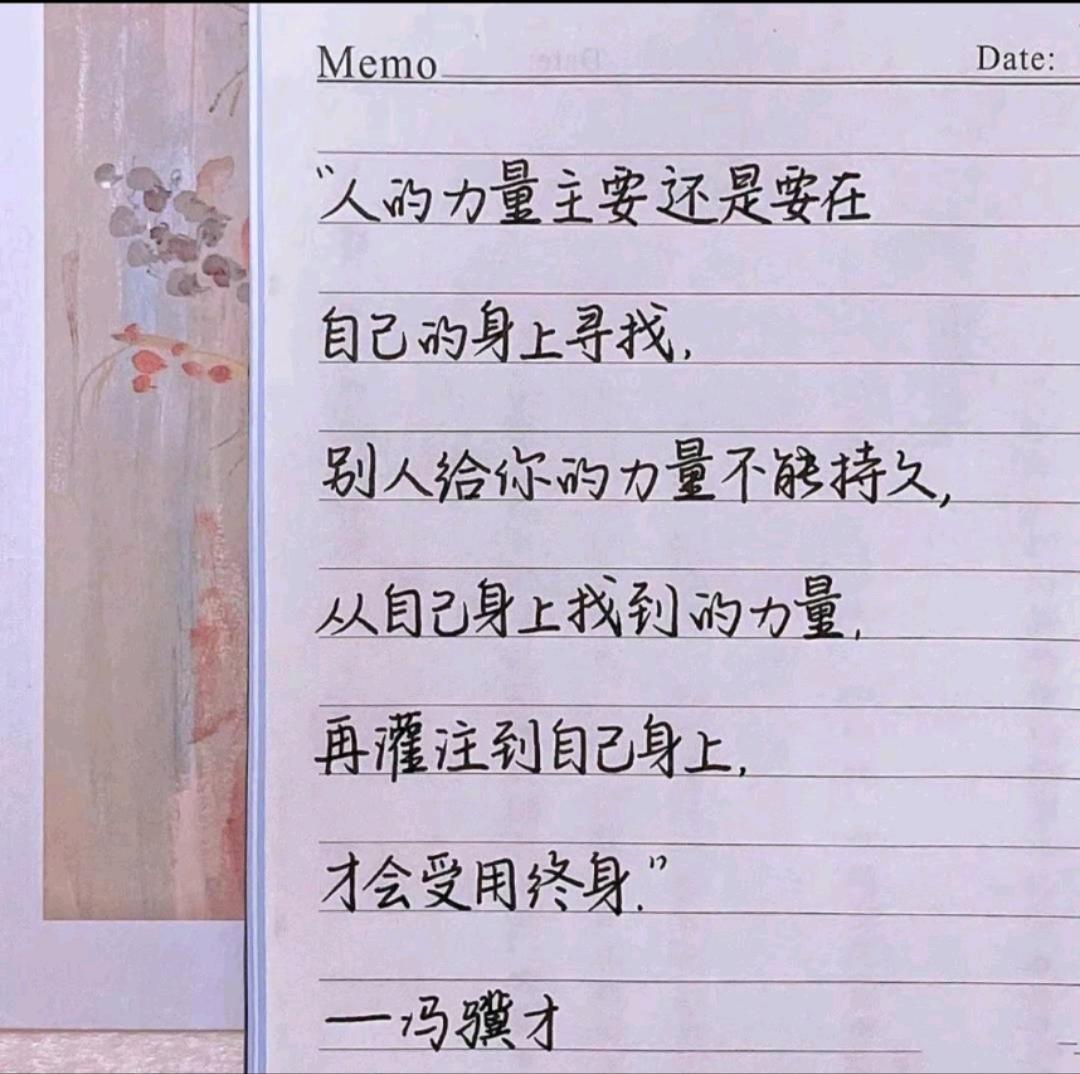 Memo
Date:
“人的力量主要还是要在
自己的身上寻找,
别人给你的力量不能持久,
从自己身上找到的力量,
再灌注到自己身上,
才会受用终身.”
—冯骥才